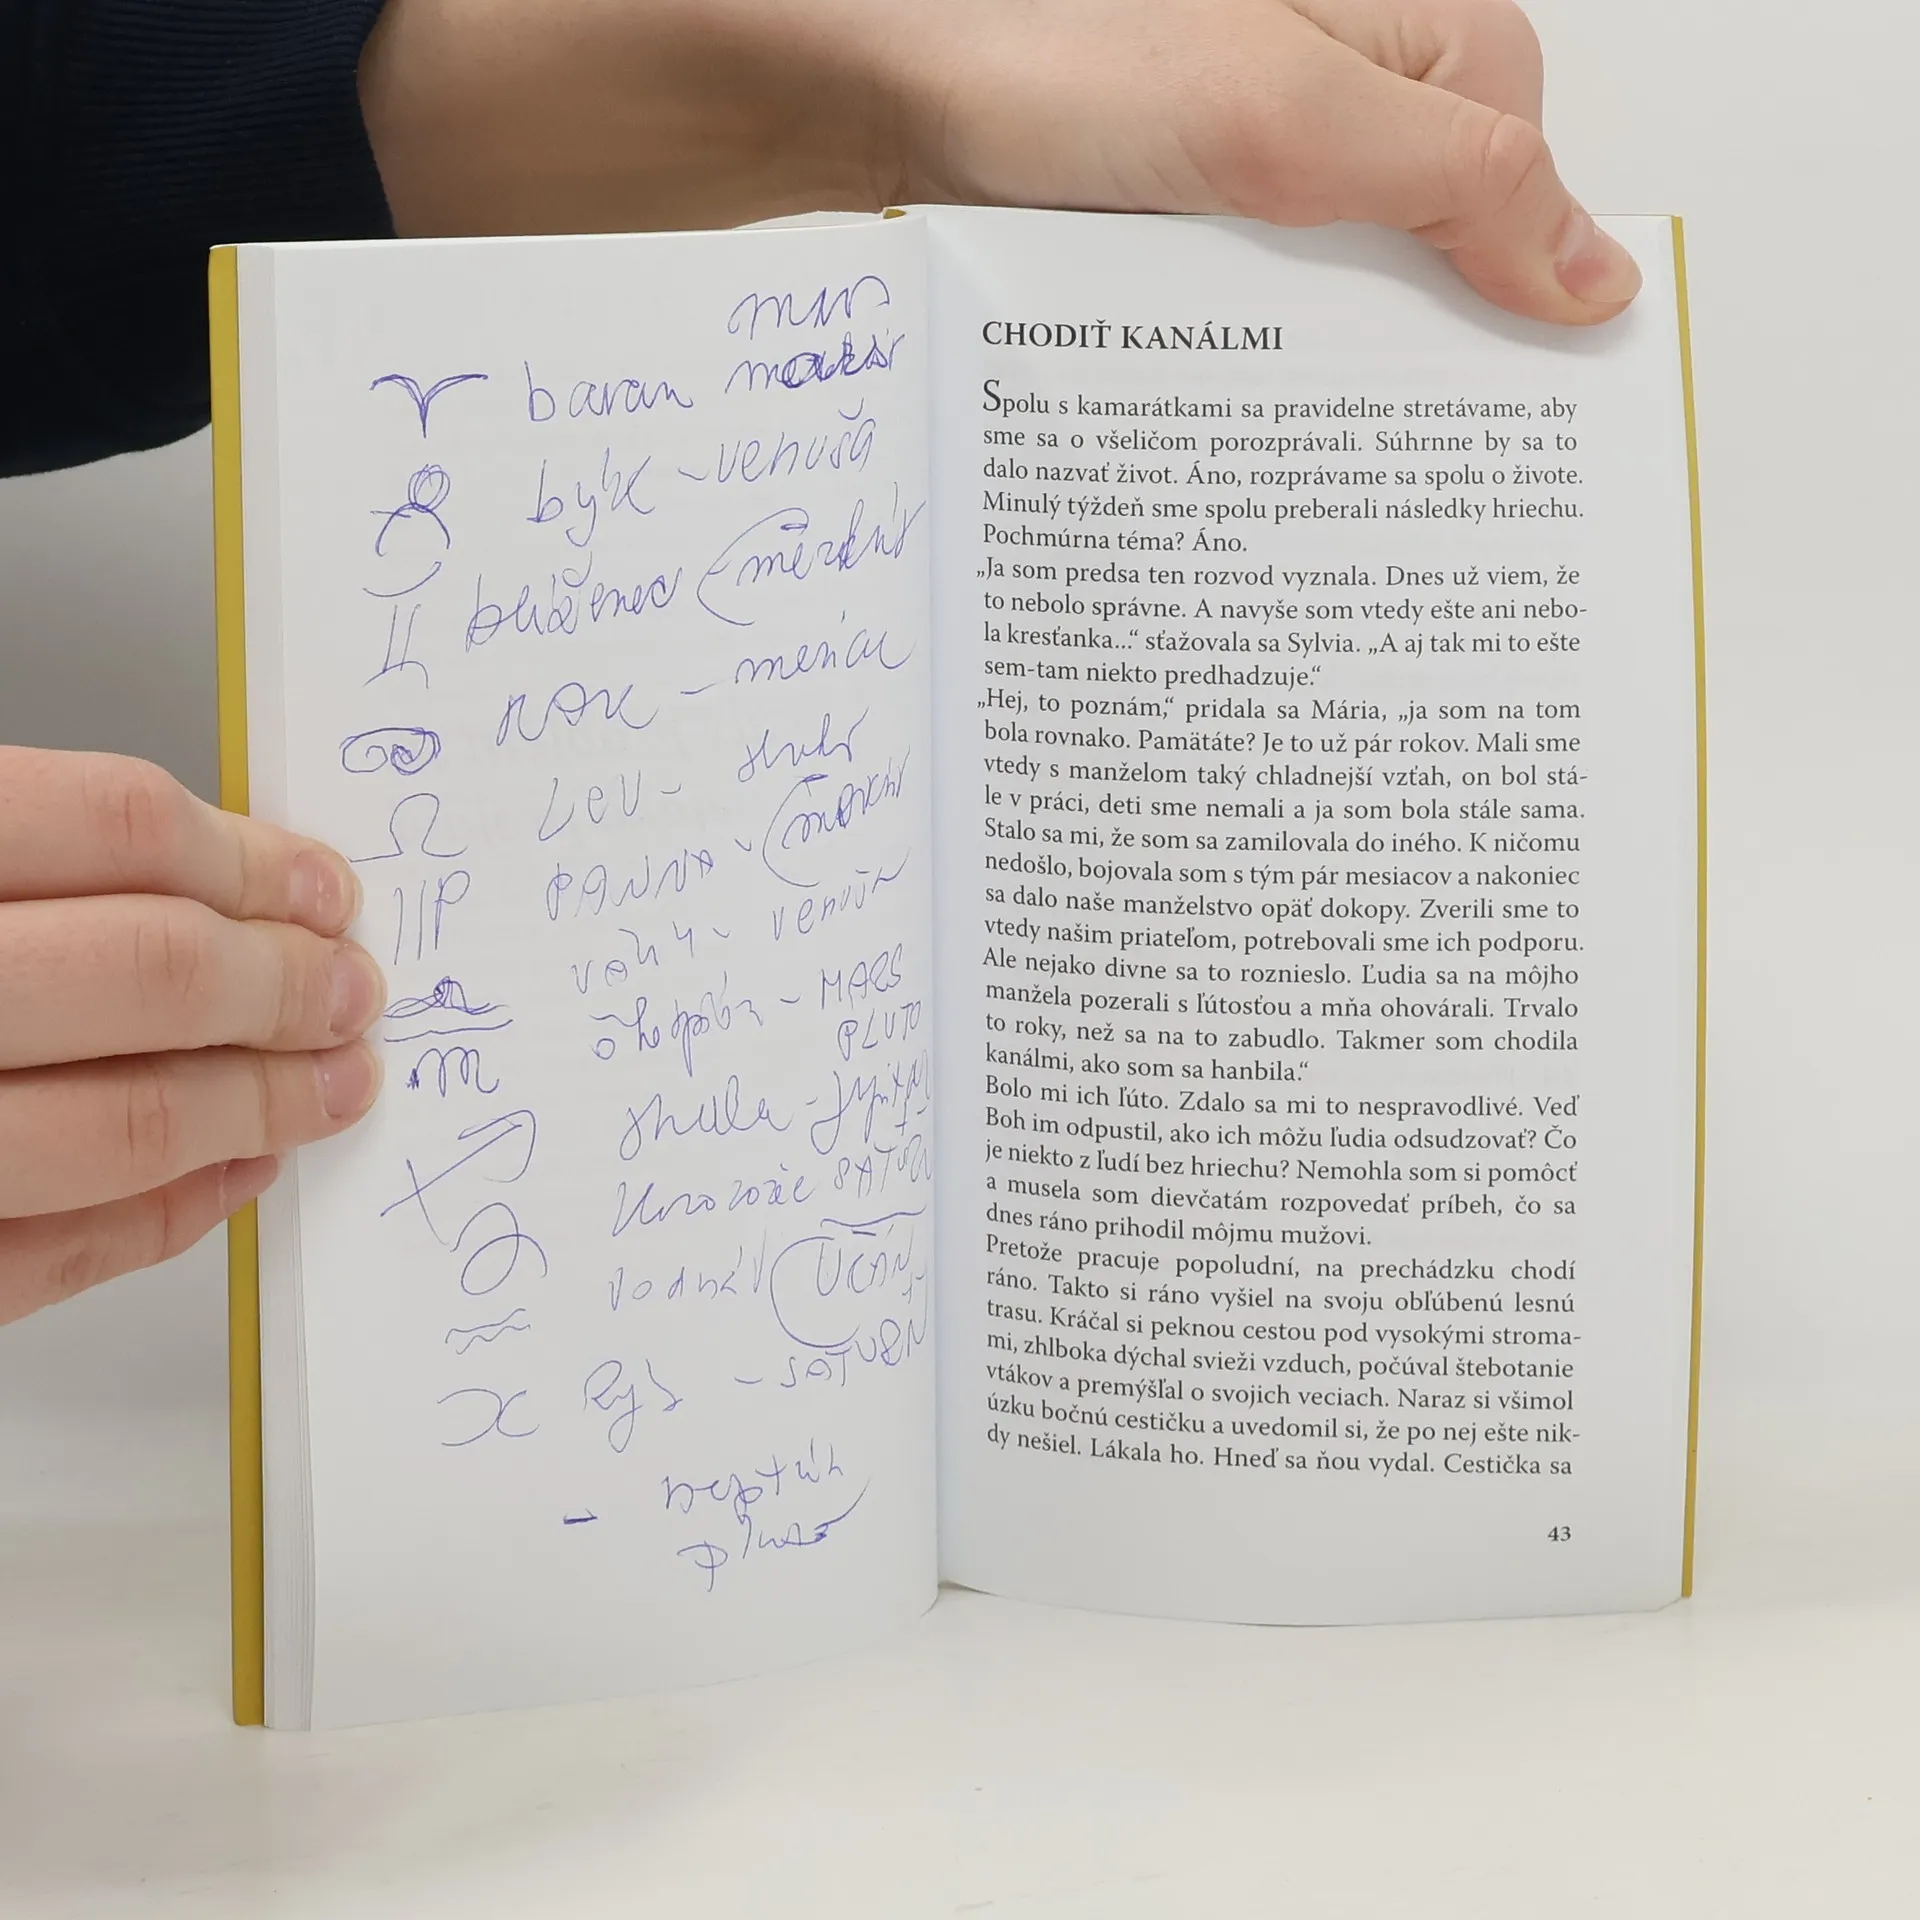 baran
býk - venuša
blíženec
RAK - mesiac
LEV -
PANNA -
váhy - venuša
- MARS
PLUTO
SATURN
vodnár
- SATURN
- neptún
CHODIŤ KANÁLMI
Spolu s kamarátkami sa pravidelne stretávame, aby
sme sa o všeličom porozprávali. Súhrnne by sa to
dalo nazvať život. Áno, rozprávame sa spolu o živote.
Minulý týždeň sme spolu preberali následky hriechu.
Pochmúrna téma? Áno.
„Ja som predsa ten rozvod vyznala. Dnes už viem, že
to nebolo správne. A navyše som vtedy ešte ani nebo-
la kresťanka...“ sťažovala sa Sylvia. „A aj tak mi to ešte
sem-tam niekto predhadzuje.“
„Hej, to poznám,“ pridala sa Mária, „ja som na tom
bola rovnako. Pamätáte? Je to už pár rokov. Mali sme
vtedy s manželom taký chladnejší vzťah, on bol stá-
le v práci, deti sme nemali a ja som bola stále sama.
Stalo sa mi, že som sa zamilovala do iného. K ničomu
nedošlo, bojovala som s tým pár mesiacov a nakoniec
sa dalo naše manželstvo opäť dokopy. Zverili sme to
vtedy našim priateľom, potrebovali sme ich podporu.
Ale nejako divne sa to roznieslo. Ľudia sa na môjho
manžela pozerali s ľútosťou a mňa ohovárali. Trvalo
to roky, než sa na to zabudlo. Takmer som chodila
kanálmi, ako som sa hanbila.“
Bolo mi ich ľúto. Zdalo sa mi to nespravodlivé. Veď
Boh im odpustil, ako ich môžu ľudia odsudzovať? Čo
je niekto z ľudí bez hriechu? Nemohla som si pomôcť
a musela som dievčatám rozpovedať príbeh, čo sa
dnes ráno prihodil môjmu mužovi.
Pretože pracuje popoludní, na prechádzku chodí
ráno. Takto si ráno vyšiel na svoju obľúbenú lesnú
trasu. Kráčal si peknou cestou pod vysokými stroma-
mi, zhlboka dýchal svieži vzduch, počúval štebotanie
vtákov a premýšľal o svojich veciach. Naraz si všimol
úzku bočnú cestičku a uvedomil si, že po nej ešte nik-
dy nešiel. Lákala ho. Hneď sa ňou vydal. Cestička sa
43